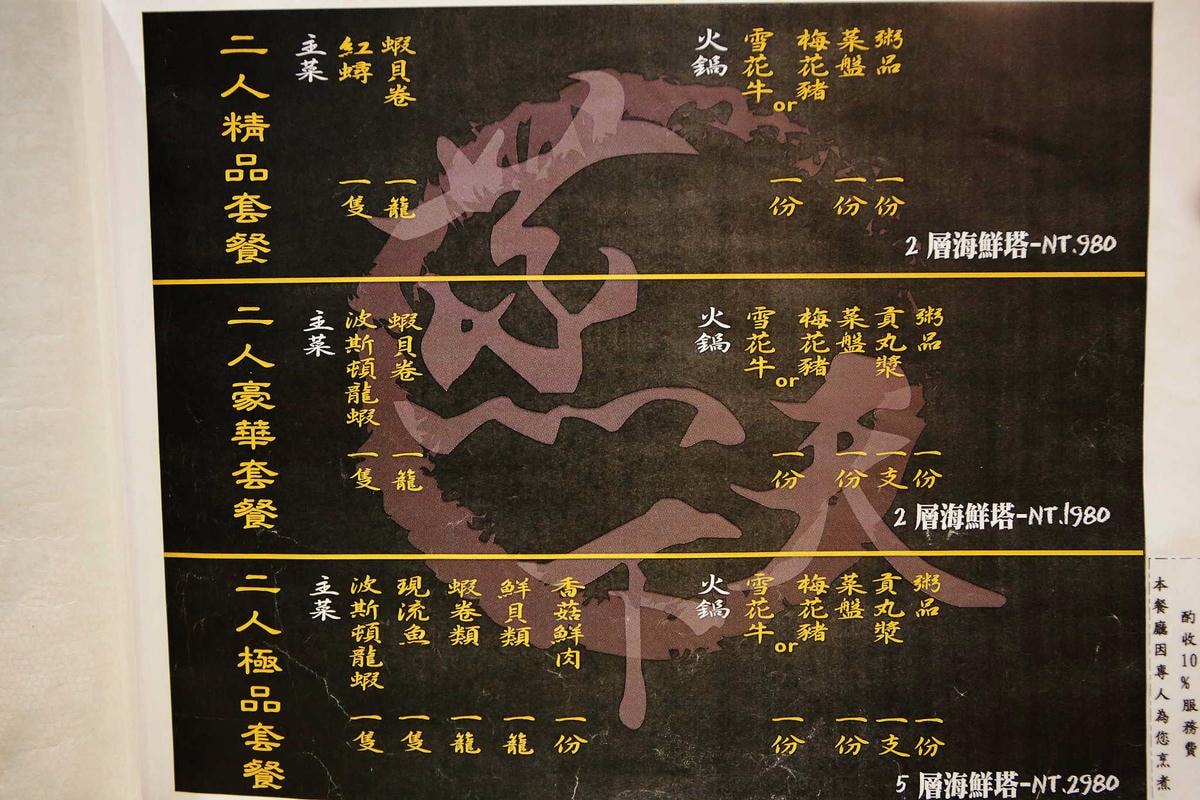 二人精品套餐
主菜
紅蟳 一隻
蝦貝卷 一籠
火鍋
雪花牛 or 梅花豬 一份
菜盤 一份
粥品 一份
2 層海鮮塔-NT.980
二人豪華套餐
主菜
波斯頓龍蝦 一隻
蝦貝卷 一籠
火鍋
雪花牛 or 梅花豬 一份
菜盤 一份
貢丸漿 一支
粥品 一份
2 層海鮮塔-NT.1980
二人極品套餐
主菜
波斯頓龍蝦 一隻
現流魚 一隻
蝦卷類 一籠
鮮貝類 一籠
香菇鮮肉 一份
火鍋
雪花牛 or 梅花豬 一份
菜盤 一份
貢丸漿 一支
粥品 一份
5 層海鮮塔-NT.2980
本餐廳因專人為您烹煮
酌收10%服務費